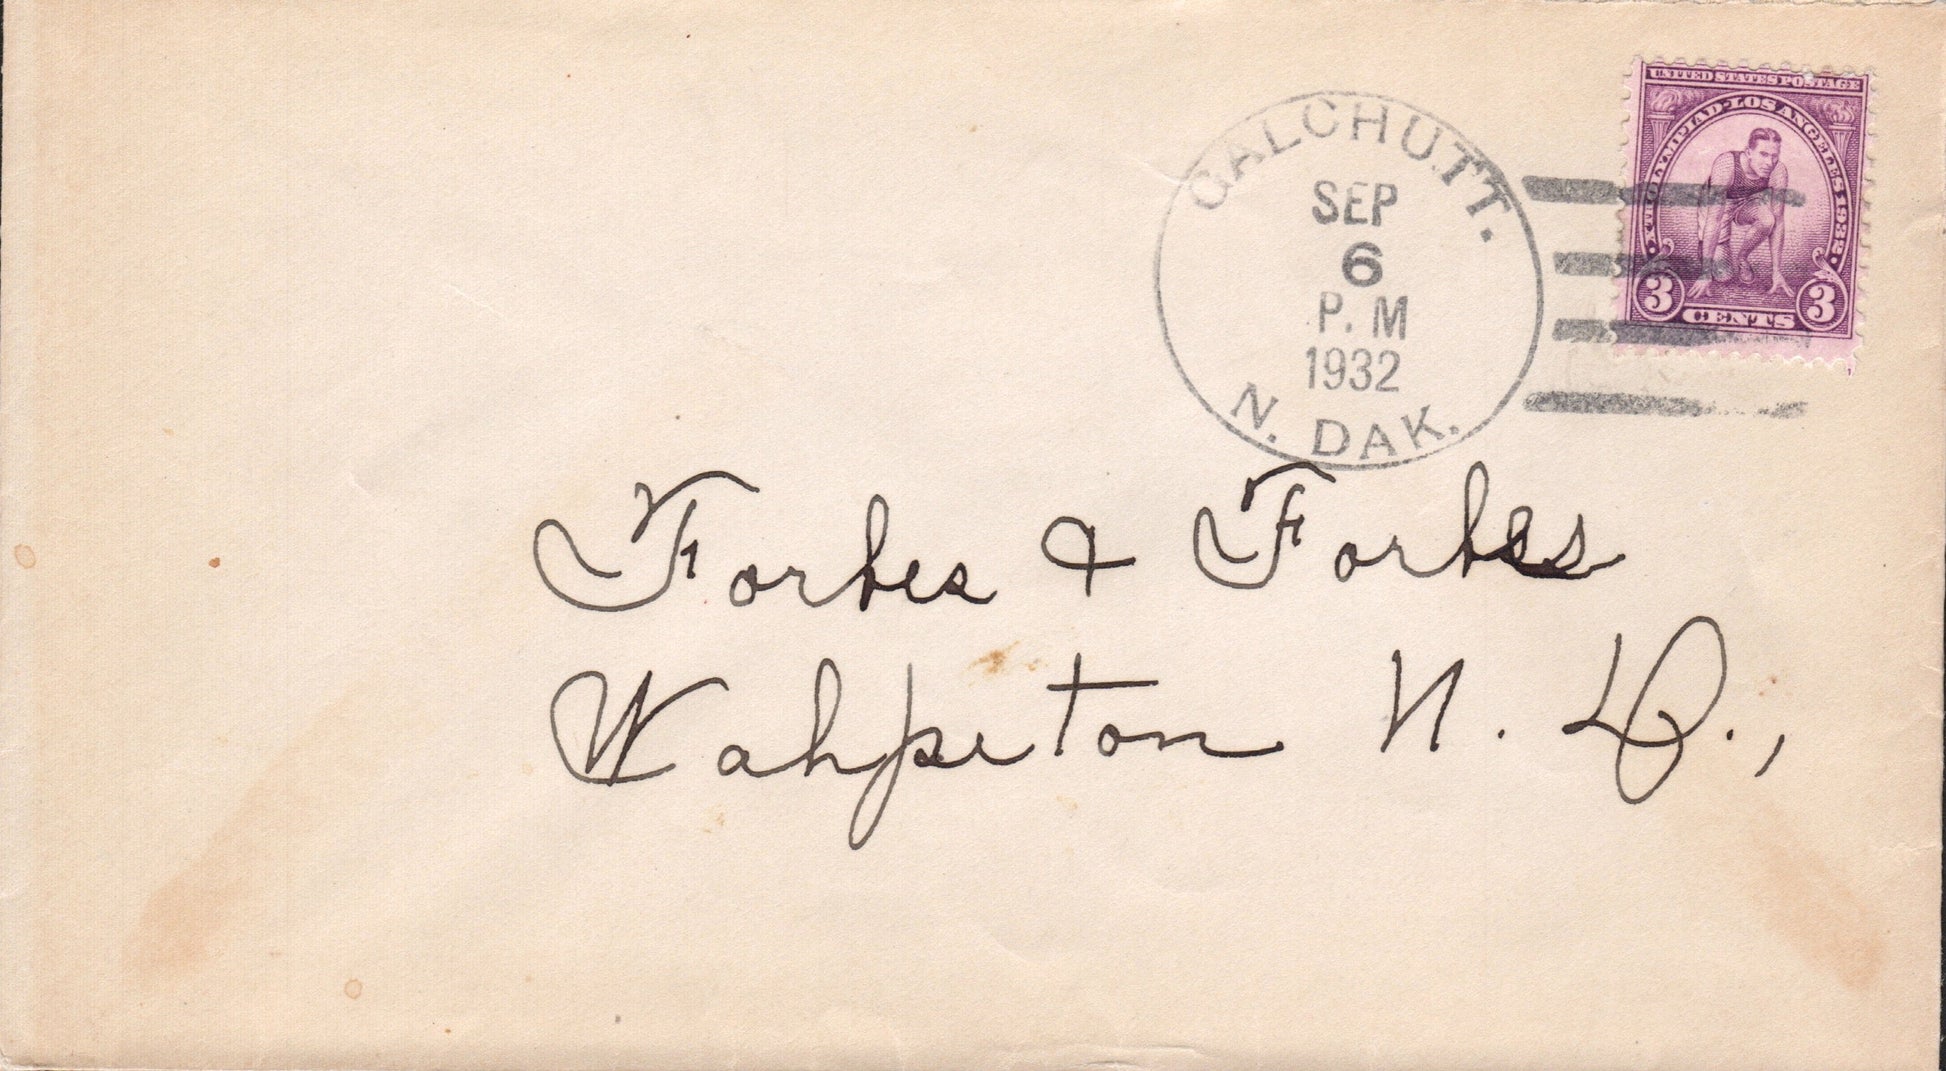 UNITED STATES POSTAGE
XTH OLYMPIAD·LOS ANGELES 1932
3 3
CENTS
GALCHUTT.
SEP
6
P. M
1932
N. DAK.
Forbes & Forbes
Wahpeton N. D.,